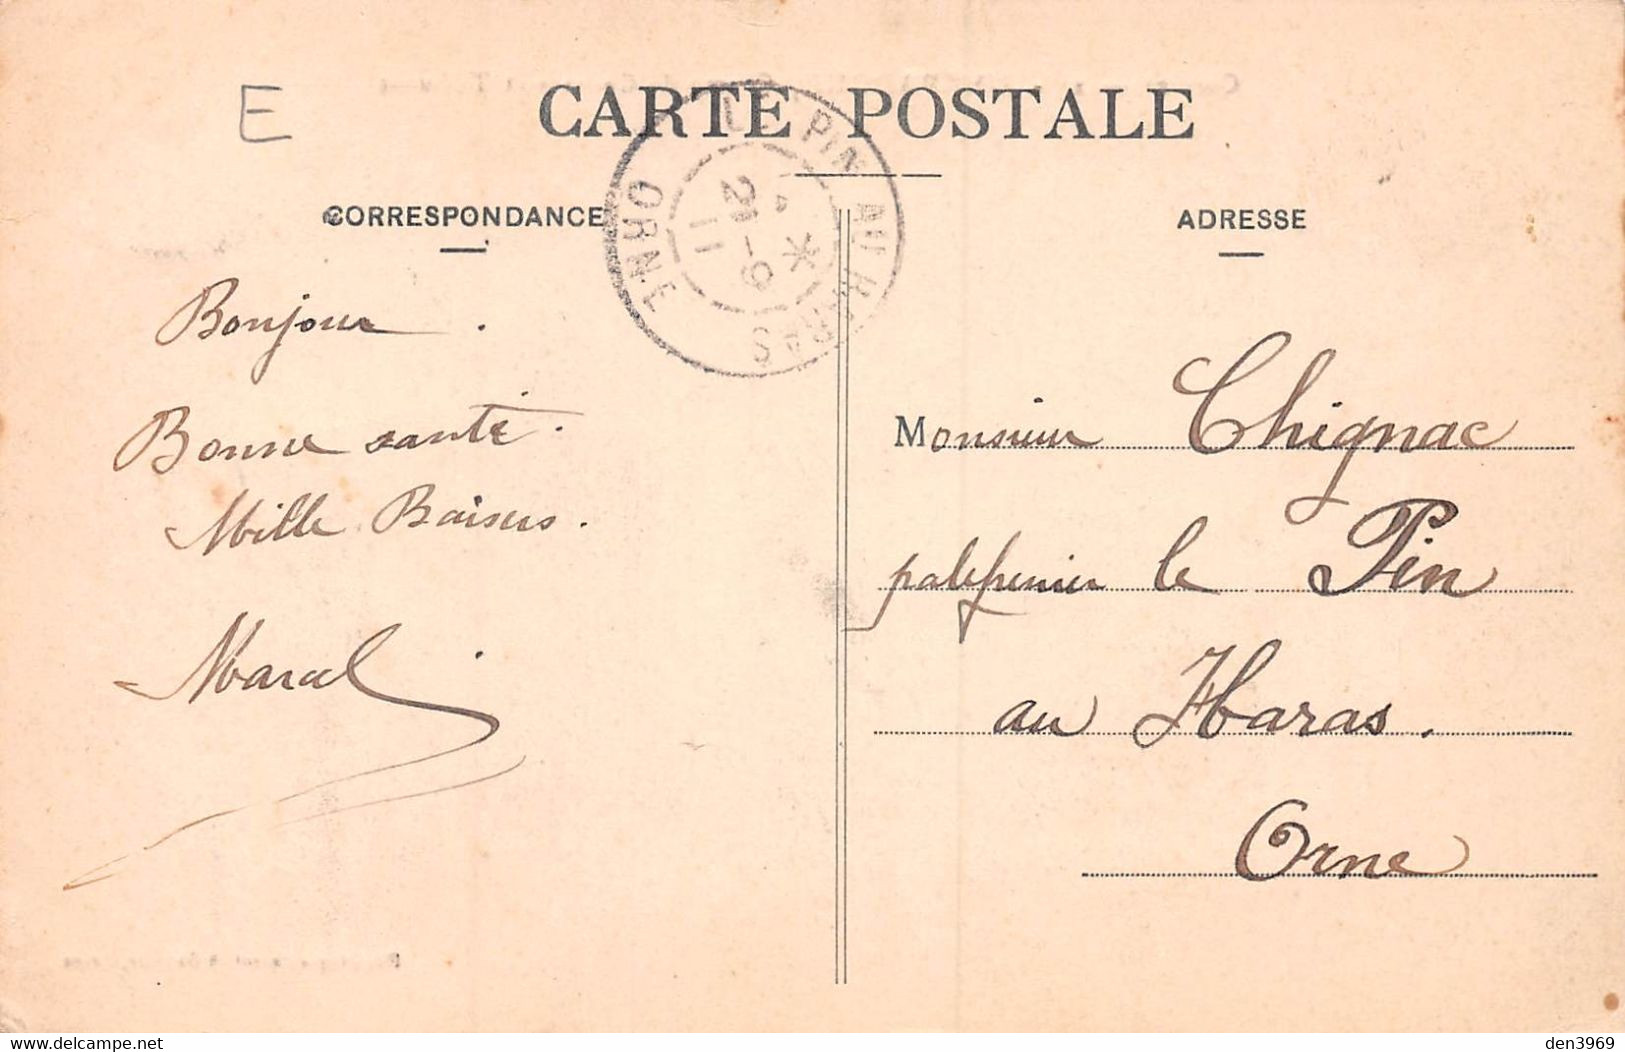 E
CARTE POSTALE
CORRESPONDANCE
ADRESSE
PIN AU HARAS
ORNE
21-9
11
Bonjour.
Bonne santé.
Mille Baisers.
Marcel
Monsieur Chignac
palefrenier le Pin
au Haras.
Orne
delcampe.net
den3969